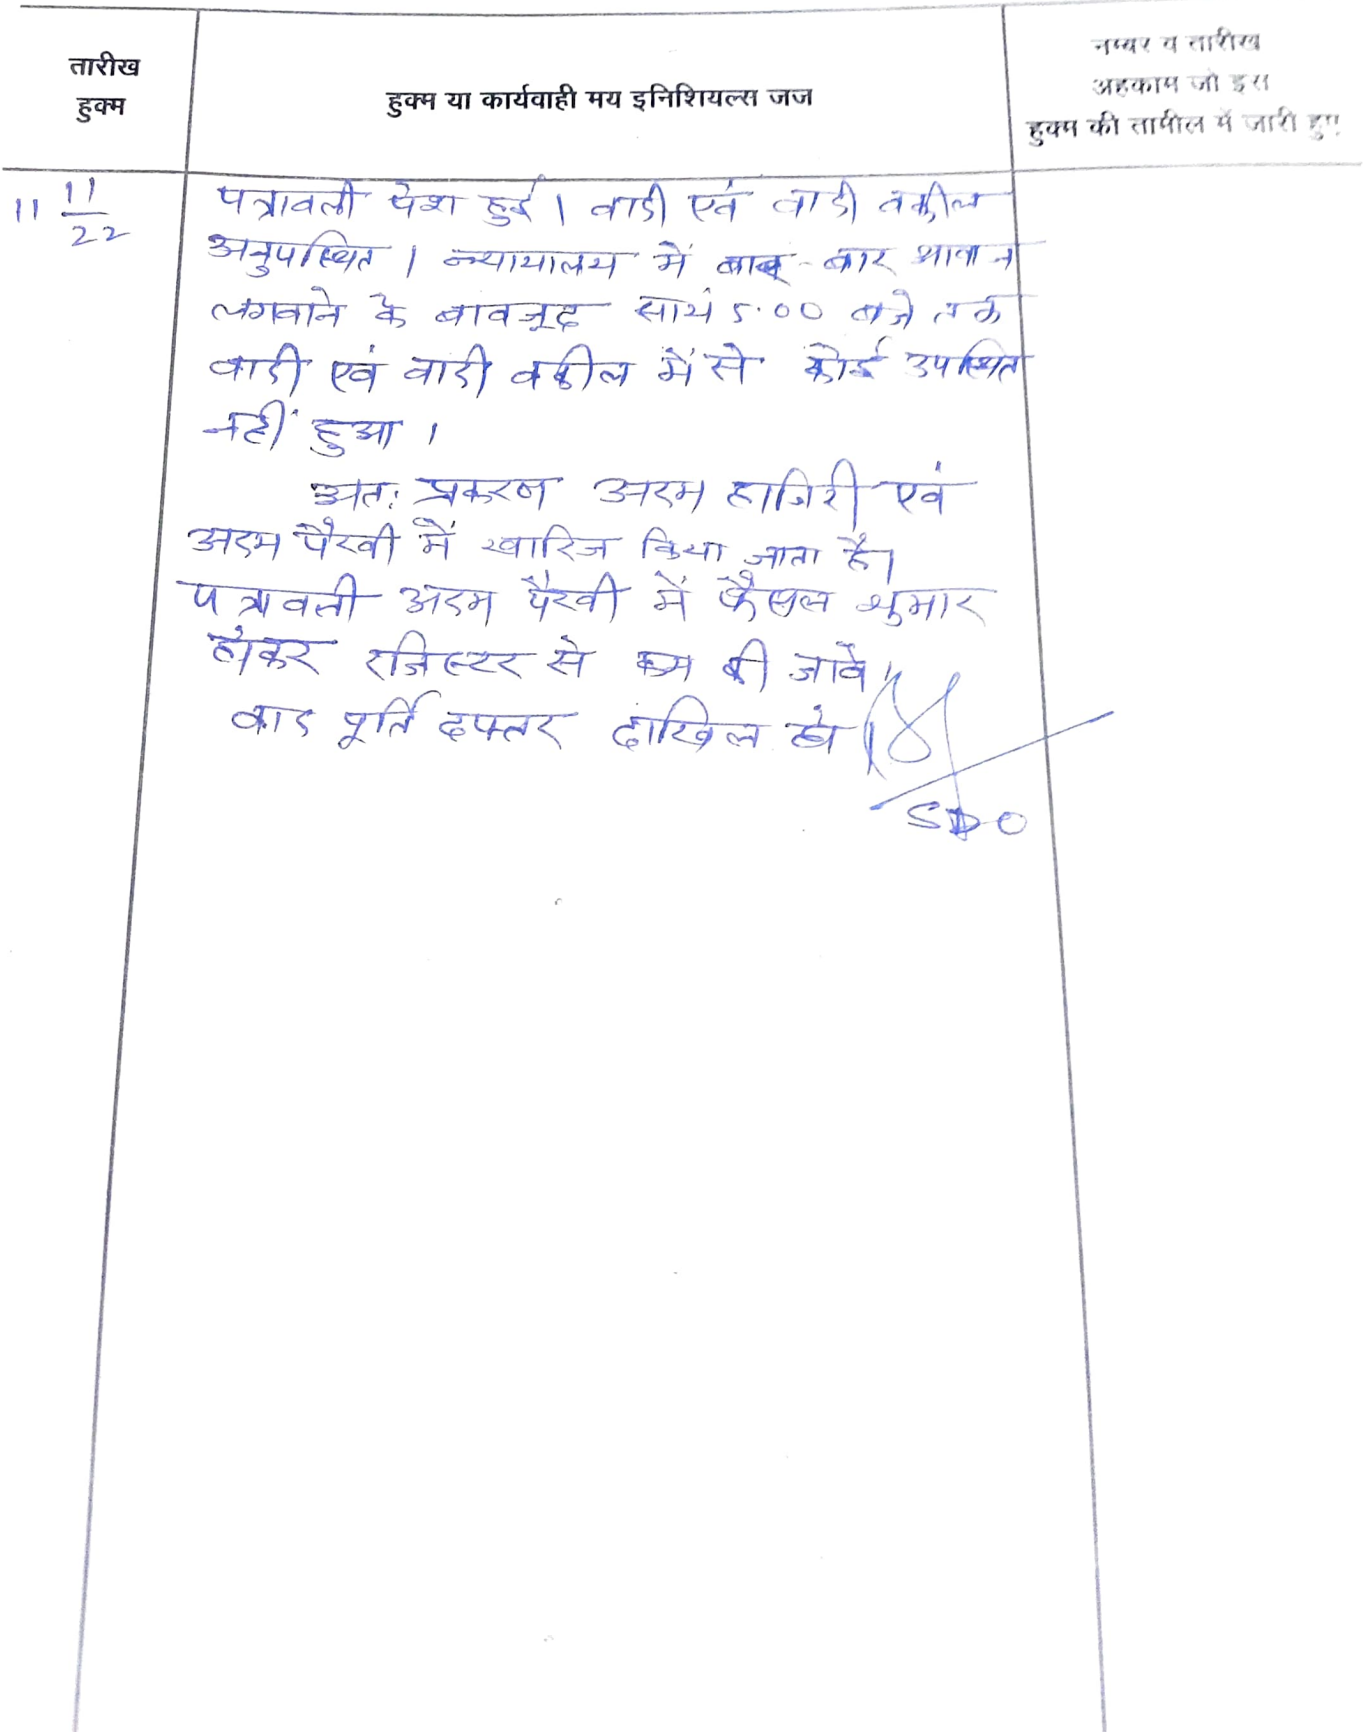 तारीख
हुक्म
हुक्म या कार्यवाही मय इनिशियल्स जज
नम्बर व तारीख
अहकाम जो इस
हुक्म की तामील में जारी हुए
11 11/22
पत्रावली पेश हुई । वादी एवं वादी वकील
अनुपस्थित । न्यायालय में बार - बार आवाज
लगवाने के बावजूद सायं 5.00 बजे तक
वादी एवं वादी वकील में से कोई उपस्थित
नहीं हुआ ।
अत: प्रकरण अदम हाजिरी एवं
अदम पैरवी में खारिज किया जाता है।
पत्रावली अदम पैरवी में फैसल शुमार
होकर रजिस्टर से कम की जावे।
बाद पूर्ति दफ्तर दाखिल हो ।
SDO